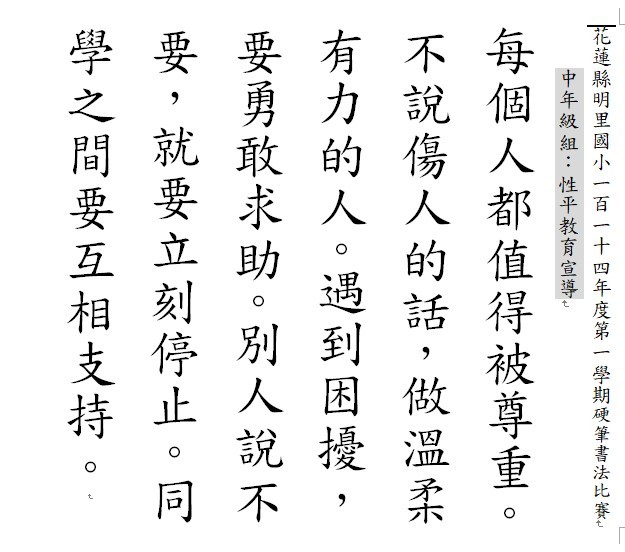 花蓮縣明里國小一百一十四年度第一學期硬筆書法比賽
中年級組：性平教育宣導
每個人都值得被尊重。
不說傷人的話，做溫柔
有力的人。遇到困擾，
要勇敢求助。別人說不
要，就要立刻停止。同
學之間要互相支持。